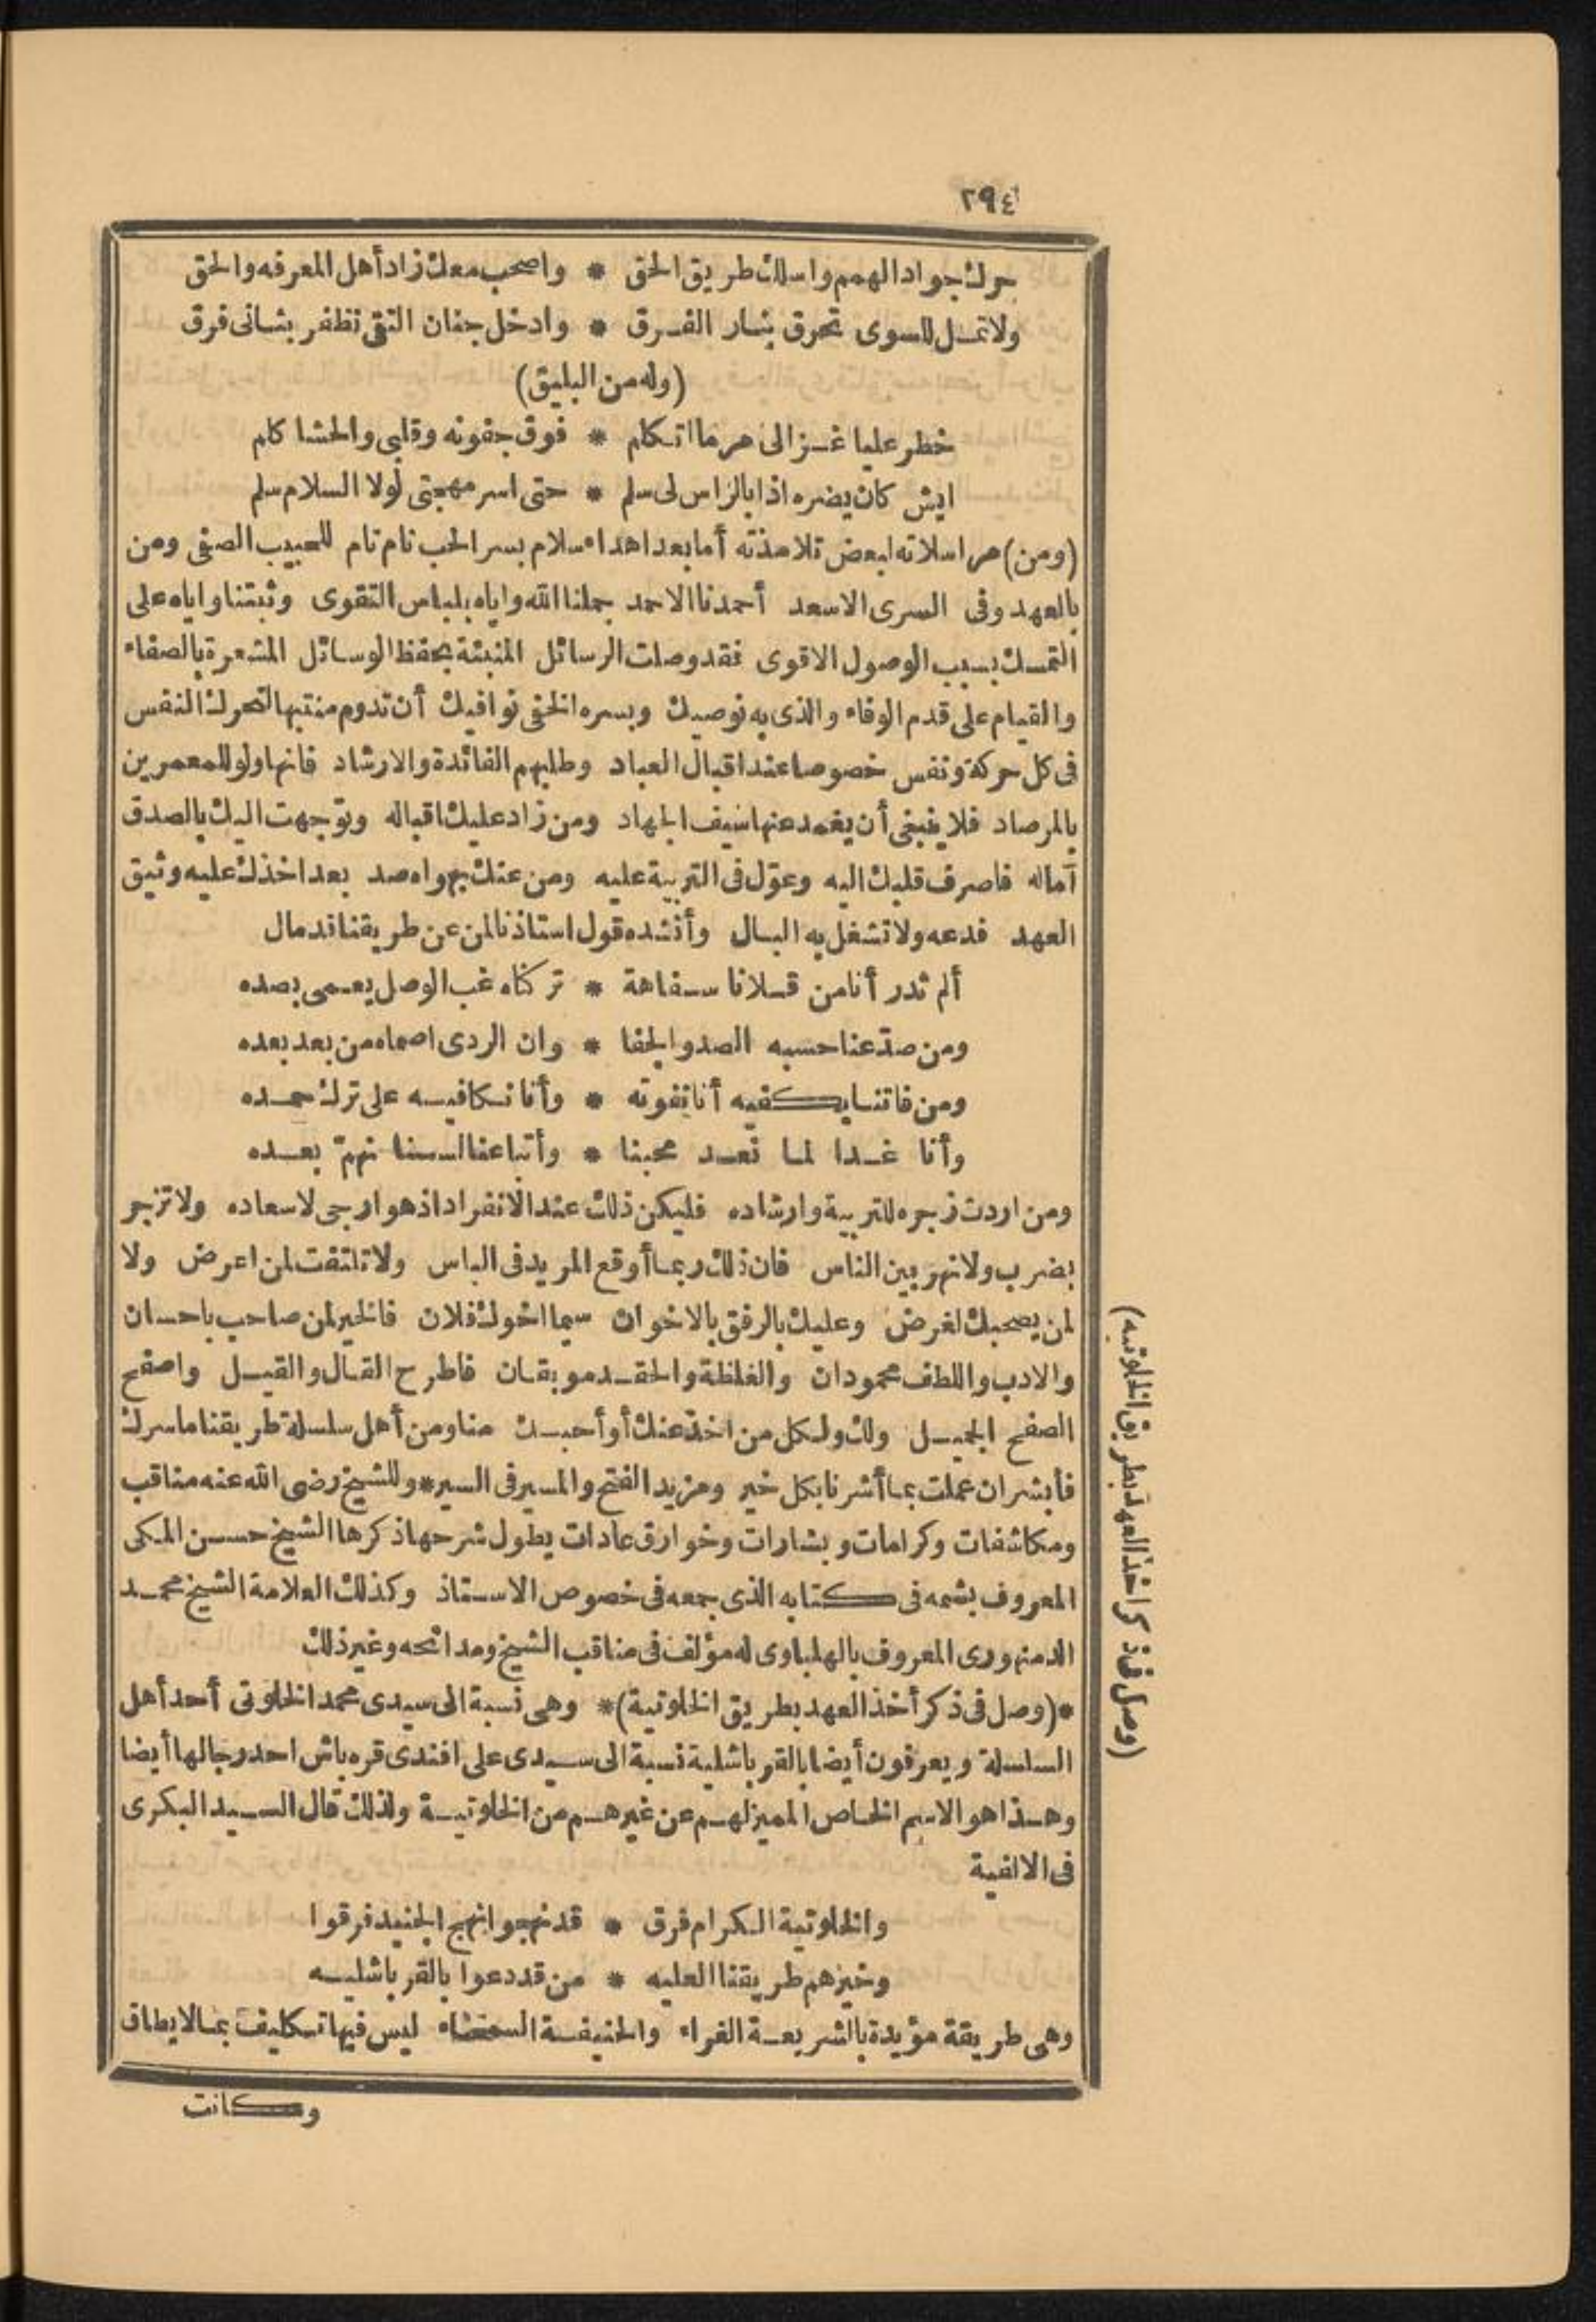 ٢٩٤
حرك جواد الهمم واسلك طريق الحق * واصحب معك زاد أهل المعرفه والحق
ولا تمل للسوى تحرق بنار الفرق * وادخل جنان التقى تظفر بثانى فرق
(وله من البليق)
خطر عليا غزالى مر ما اتكلم * فوق جفونه وقلبى والحشا كلم
ايش كان يضره اذا بالراس لى سلم * حتى اسر مهجتى لولا السلام سلم
(ومن) مراسلاته لبعض تلامذته أما بعد اهداء سلام بسر الحب نام تام للحبيب الصفى ومن
بالعهد وفى السرى الاسعد أحمدنا الاحمد جملنا الله واياه بلباس التقوى وثبتنا واياه على
التمسك بسبب الوصول الاقوى فقد وصلت الرسائل المنبئة بحفظ الوسائل المشعرة بالصفاء
والقيام على قدم الوفاء والذى به نوصيك وبسره الخفى نوافيك أن تدوم منتبها لتحرك النفس
فى كل حركة ونفس خصوصا عند اقبال العباد وطلبهم الفائدة والارشاد فانها ولو للمعمرين
بالمرصاد فلا ينبغى أن يغمد عنها سيف الجهاد ومن زاد عليك اقباله وتوجهت اليك بالصدق
آماله فاصرف قلبك اليه وعوّل فى التربية عليه ومن عنك بهواه صد بعد اخذك عليه وثيق
العهد فدعه ولا تشغل به البال وأنشده قول استاذنا لمن عن طريقنا قد مال
ألم تدر أنا من قلانا سفاهة * تركناه غب الوصل يعمى بصده
ومن صدّ عنا حسبه الصد والجفا * وان الردى اصماه من بعد بعده
ومن فاتنا يكفيه أنا نفوته * وأنا نكافيه على ترك حمده
وأنا غدا لما نعد محبنا * وأتباعنا لسنا نهمّ بعده
ومن اردت زجره للتربية وارشاده فليكن ذلك عند الانفراد اذ هو ارجى لاسعاده ولا تزجر
بضرب ولا نهر بين الناس فان ذلك ربما أوقع المريد فى الباس ولا تلتفت لمن اعرض ولا
لمن يصحبك لغرض وعليك بالرفق بالاخوان سيما اخوك فلان فالخير لمن صاحب باحسان
والادب واللطف محمودان والغلظة والحقد موبقان فاطرح القال والقيل واصفح
الصفح الجميل ولك ولكل من اخذ عنك أو أحبك منا ومن أهل سلسلة طريقنا ما سرك
فأبشر ان عملت بما أشرنا بكل خير ومزيد الفتح والمسير فى السير * وللشيخ رضى الله عنه مناقب
ومكاشفات وكرامات وبشارات وخوارق عادات يطول شرحها ذكرها الشيخ حسن المكى
المعروف بشمه فى كتابه الذى جمعه فى خصوص الاستاذ وكذلك العلامة الشيخ محمد
الدمنهورى المعروف بالهلباوى له مؤلف فى مناقب الشيخ ومدائحه وغير ذلك
*(وصل فى ذكر أخذ العهد بطريق الخلوتية)* وهى نسبة الى سيدى محمد الخلوتى أحد أهل
السلسلة ويعرفون أيضا بالقرباشلية نسبة الى سيدى على افندى قره باش احد رجالها أيضا
وهذا هو الاسم الخاص المميز لهم عن غيرهم من الخلوتية ولذلك قال السيد البكرى
فى الالفية
والخلوتية الكرام فرق * قد نهجوا نهج الجنيد فرقوا
وخيرهم طريقنا العليه * من قد دعوا بالقرباشليه
وهى طريقة مؤيدة بالشريعة الغراء والحنيفية السمحاء ليس فيها تكليف بما لا يطاق
وكانت
(وصل فى ذكر اخذ العهد بطريق الخلوتيه)